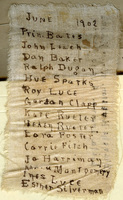 JUNE 1902
Prin. Bates
John Leach
Dan Baker
Ralph Dugan
Sue Sparks
Roy Luce
Gordan Clapp
Kate
Lora
Carrie Fitch
Jo Harriman
Montgomery
Inez Luce
Esther Silverman